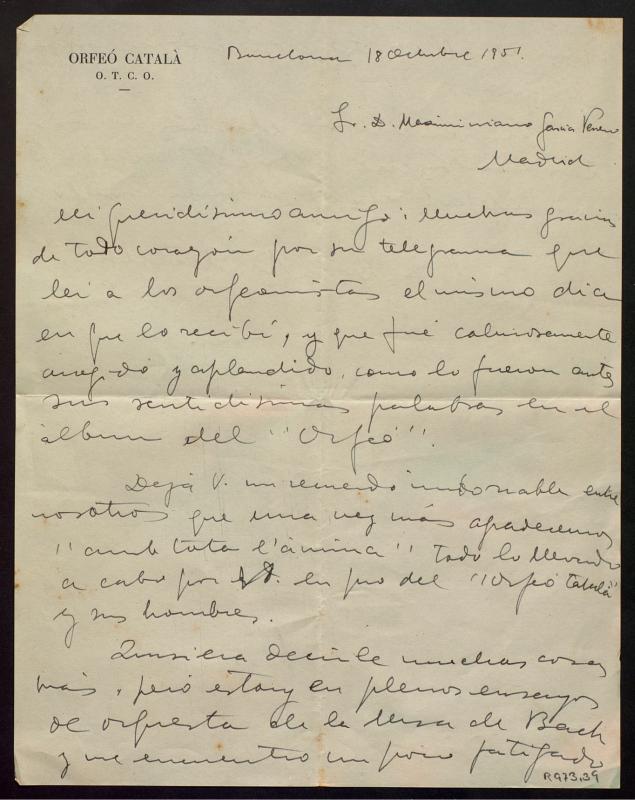 ORFEÓ CATALÀ
O. T. C. O.
Barcelona 18 Octubre 1951.
Sr. D. Maximiano García Venero
Madrid
Mi queridísimo amigo: Muchas gracias
de todo corazón por su telegrama que
leí a los orfeonistas el mismo día
en que lo recibí, y que fué calurosamente
acogido y aplaudido, como lo fueron antes
sus sentidísimas palabras en el
álbum del "Orfeó".
Dejó V. un recuerdo imborrable entre
nosotros que una vez más agradecemos
"amb tota l'ànima" todo lo llevado
a cabo por V. en pro del "Orfeó Català"
y sus hombres.
Quisiera decirle muchas cosas
más, pero estoy en plenos ensayos
de orquesta de la Misa de Bach
y me encuentro un poco fatigado
R.973,39